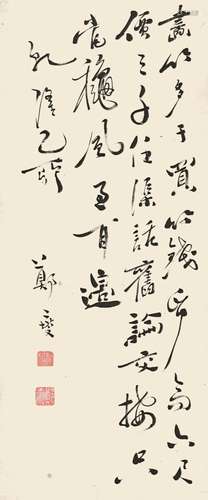 畫竹多于買竹錢紙高六尺
價三千任渠話舊論交接只
當秋風過耳邊
乾隆
鄭燮